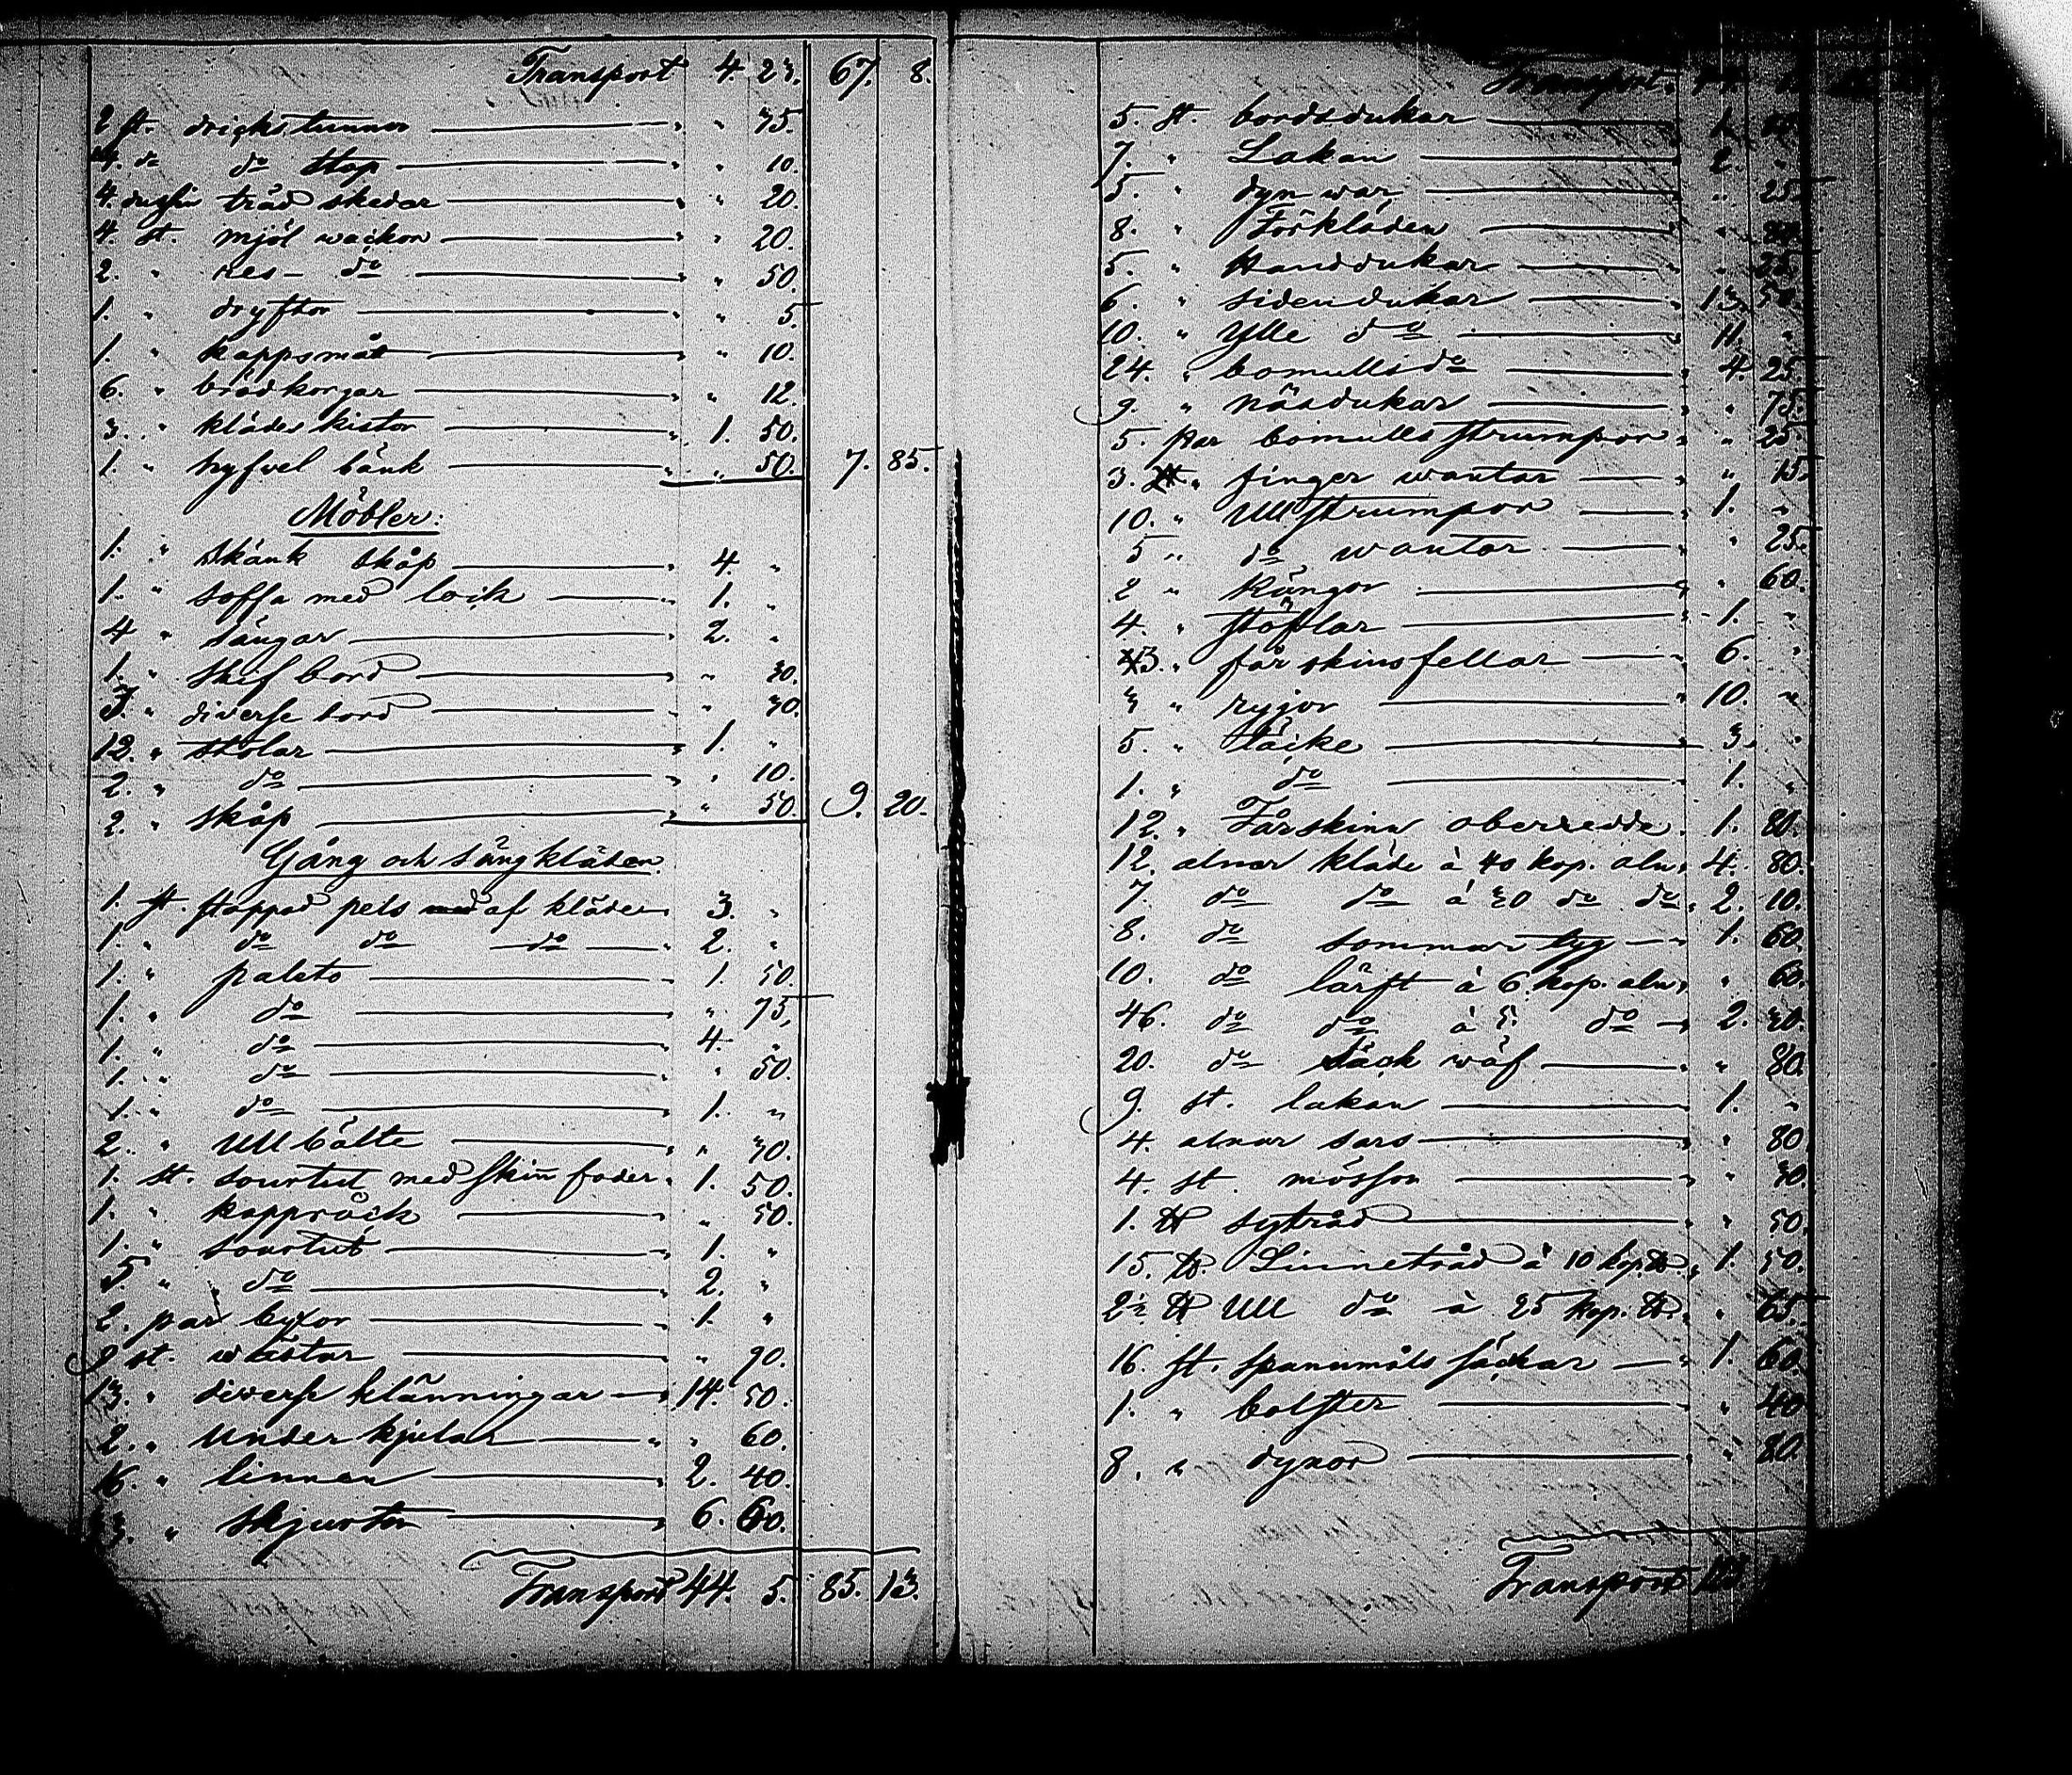 Transport 4 23. 67. 8.
2 st. dricks tunnor " 75.
4. do do stop " 10.
4 dussin träd skedar " 20.
4. st. mjöl wackor " 20.
2. " res- do " 50.
1. " dryftor " 5.
1. " kappsmåt " 10.
6. " brödkorgar " 12.
3. " klädes kistor 1. 50.
1. " hyfvel bänk " 50. 7. 85.
Möbler:
1. " Skänk skåp 4. "
1. " soffa med lock 1. "
4 " sängar 2. "
1. " skif bord " 30.
3. " diverse bord " 30.
12. " stolar 1. "
2. " do " 10.
2. " skåp " 50. 9. 20.
Gång och sängkläder
1. st. stoppad pels af kläde 3. "
1. " do do do 2. "
1. " paleto 1. 50.
1. " do " 75.
1. " do 4. "
1. " do " 50.
1. " do 1. "
2. " Ull bälte " 30.
1. st. sourtut med skin foder 1. 50.
1. " kapprock " 50.
1. " sourtut 1. "
5. " do 2. "
2. par byxor 1. "
9 st. wästar " 90.
13. " diverse klänningar 14. 50.
2. " Under kjolar " 60.
16. " linnen 2. 40.
" skjortor 6. 60.
Transport 44. 5. 85. 13.
Transport
5. st. bordsdukar
7. " Lakan 2. "
5. " dyn war " 25.
8. " Förkläden "
5. " Handdukar " 25.
6. " sidendukar 13. 50.
10. " Ylle do 11. "
24. " bomulls do 4. 25.
9. " näsdukar " 75.
5. par bomulls strumpor " 25.
3. " finger wantar " 15.
10. " Ull strumpor 1. "
5 " do wantar " 25.
2 " Kängor " 60.
4. " stöflar 1. "
3. " får skins fellar 6. "
3 " ryjor 10. "
5. " täcke 3. "
1. " do 1. "
12. " Fårskinn oberedde 1. 80.
12. alnar kläde à 40 kop. aln 4. 80.
7. do do à 30 do do 2. 10.
8. do sommar tyg 1. 60.
10. do lärft à 6 kop. aln " 60.
46. do do à 5. do 2. 30.
20. do täck wäf " 80.
9. st. lakan 1. "
4. alnar sars " 80
4. st. mössor " 30
1. ℔ sytråd " 50.
15. ℔. Linnetråd à 10 kop. ℔. 1. 50.
2½ ℔ Ull do à 25 kop. ℔. " 65.
16. st. spanmåls säckar 1. 60.
1. " bolster " 40
8. " dynor " 80.
Transport